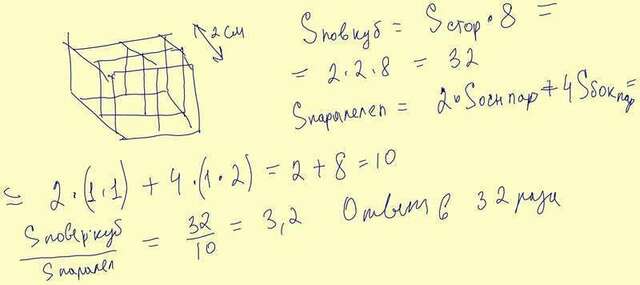 2 см
Sповкуб = Sстор · 8 =
= 2 · 2 · 8 = 32
Sпаралелеп = 2 · Sоснпар + 4 Sбокпар =
= 2 · (1 · 1) + 4 · (1 · 2) = 2 + 8 = 10
Sповер.куб / Sпаралел = 32 / 10 = 3,2 Ответ в 32 раза